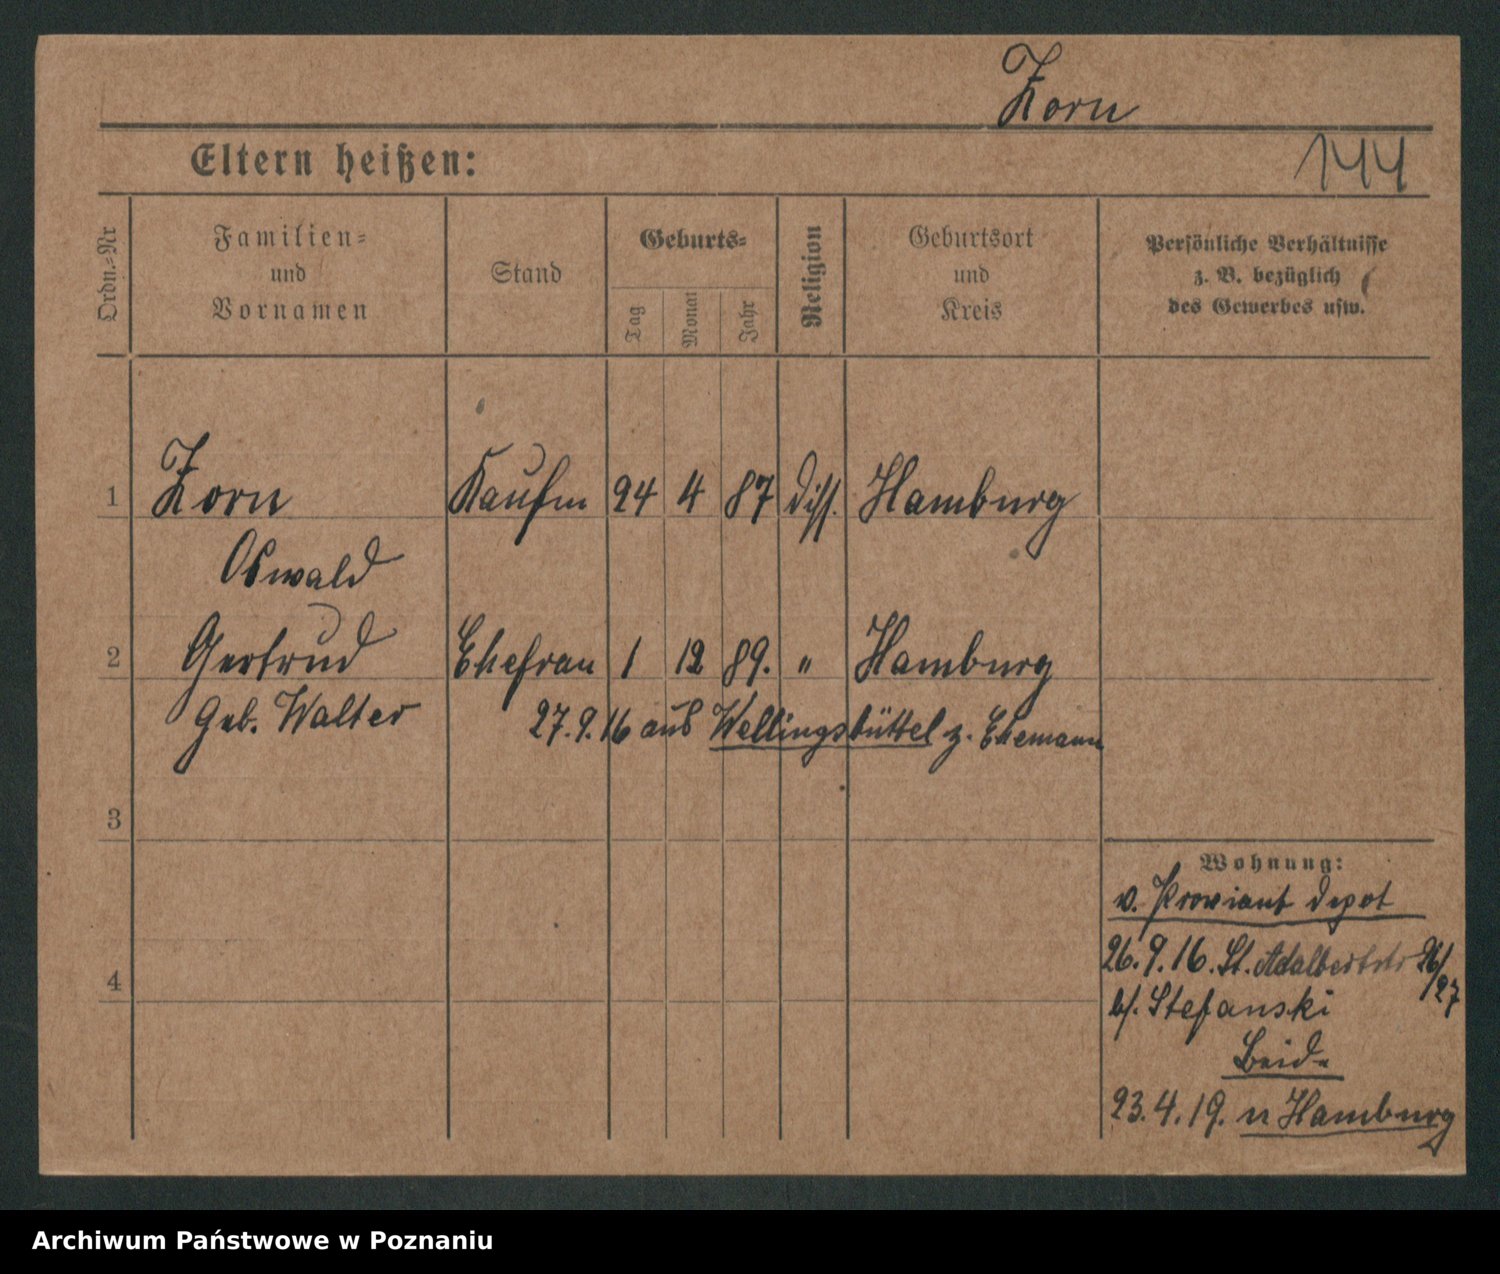 Zorn
Eltern heißen:
144
Ordn.-Nr
Familien-
und
Vornamen
Stand
Geburts-
Tag
Monat
Jahr
Religion
Geburtsort
und
Kreis
Persönliche Verhältnisse
z. B. bezüglich
des Gewerbes usw.
1 Zorn Kaufm 24 4 87 diss. Hamburg
Oswald
2 Gertrud Ehefrau 1 12 89. " Hamburg
geb. Walter
27.9.16 aus Wellingsbüttel z. Ehemann
3
4
Wohnung:
v. Proviant depot
26.9.16. St. Adalbertstr 26/27
b/. Stefanski
Beide
23.4.19. n Hamburg
Archiwum Państwowe w Poznaniu